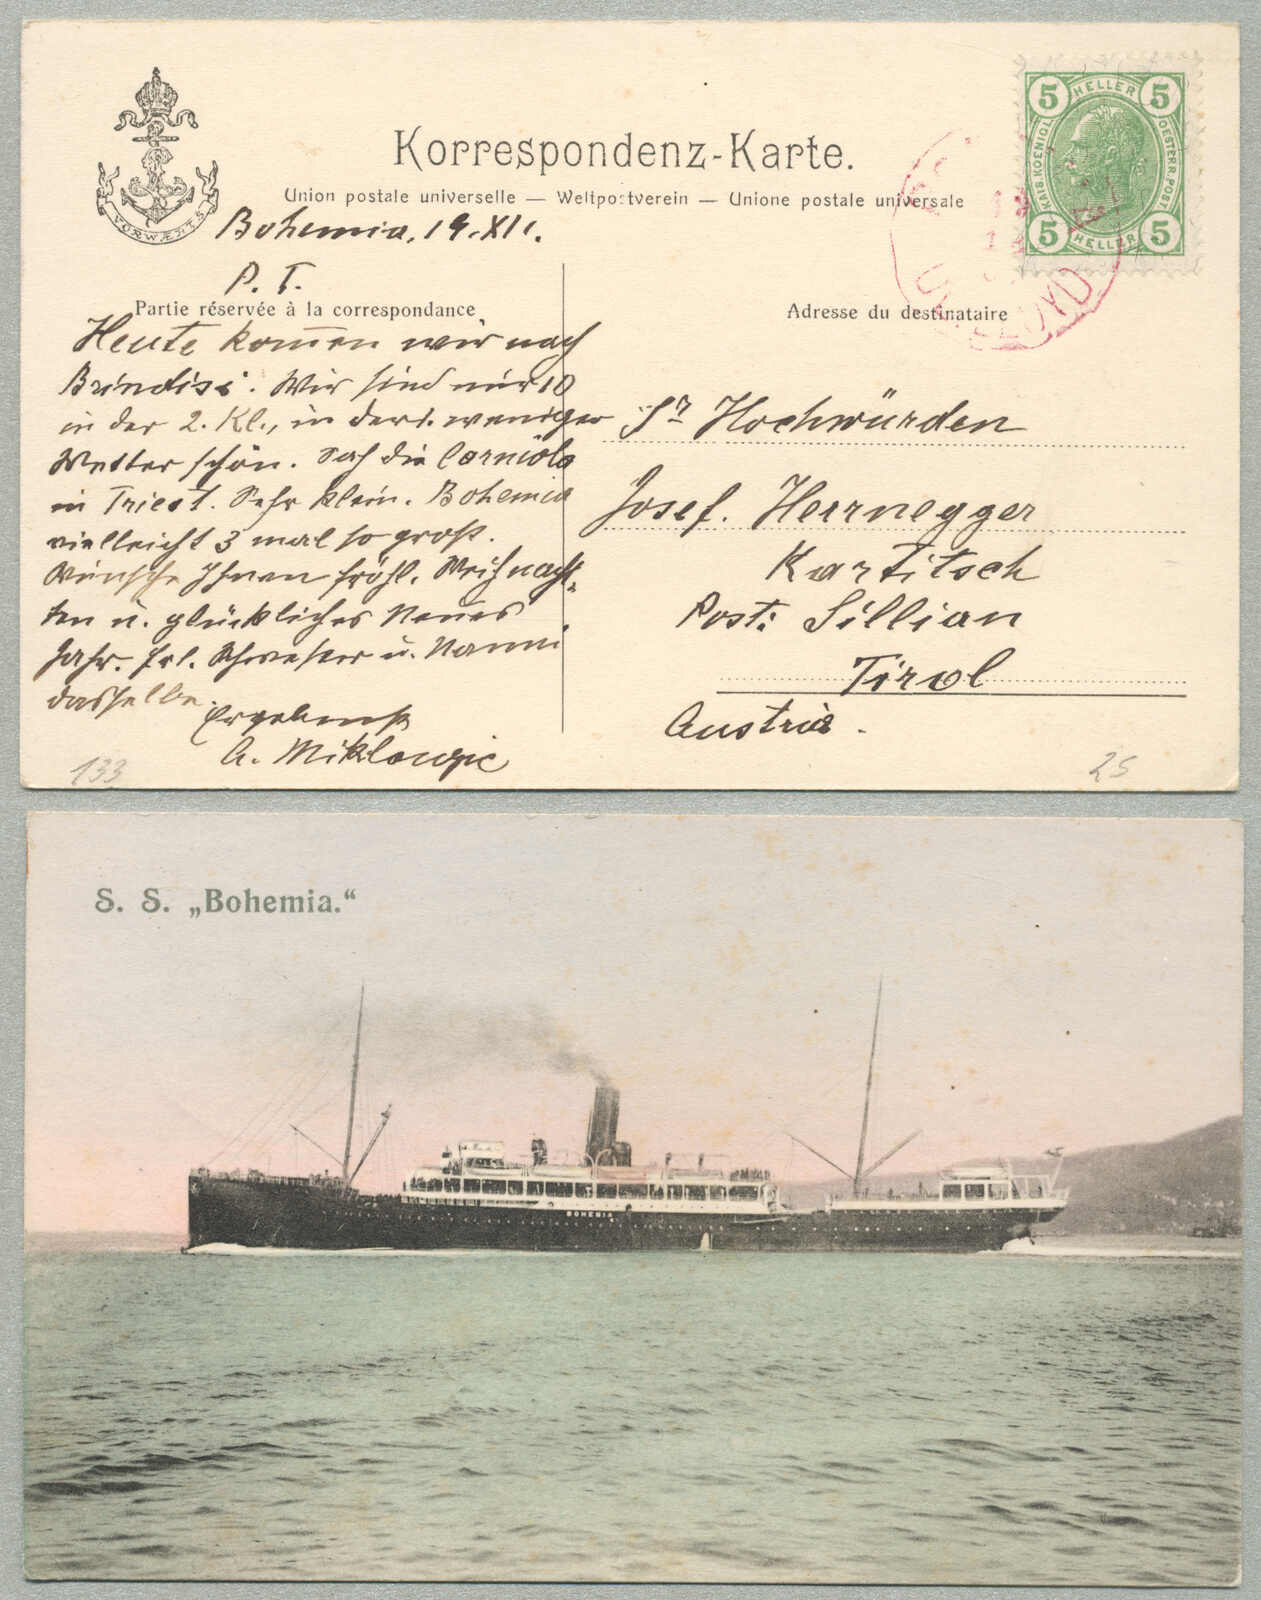 VORWÆRTS
Korrespondenz-Karte.
Union postale universelle — Weltpostverein — Unione postale universale
5 HELLER 5
KAIS. KOENIGL. OESTERR. POST.
5 HELLER 5
LLOYD
Bohemia, 19. XII.
P. T.
Partie réservée à la correspondance
Heute kom̅en wir nach
Brindisi. Wir sind nur 10
in der 2. Kl., in der 1. weniger
Wetter schön. Sah die Carniola
in Triest. Sehr klein. Bohemia
vielleicht 3 mal so groß.
Wünsche Ihnen fröhl. Weihnach-
ten u. glückliches Neues
Jahr. Frl. Schwester u. Nanni
dasselbe.
Ergebenst
A.
133
Adresse du destinataire
Sr Hochwürden
Josef. Herrnegger
Kartitsch
Post: Sillian
Tirol
Austria.
25
S. S. „Bohemia.“
BOHEMIA